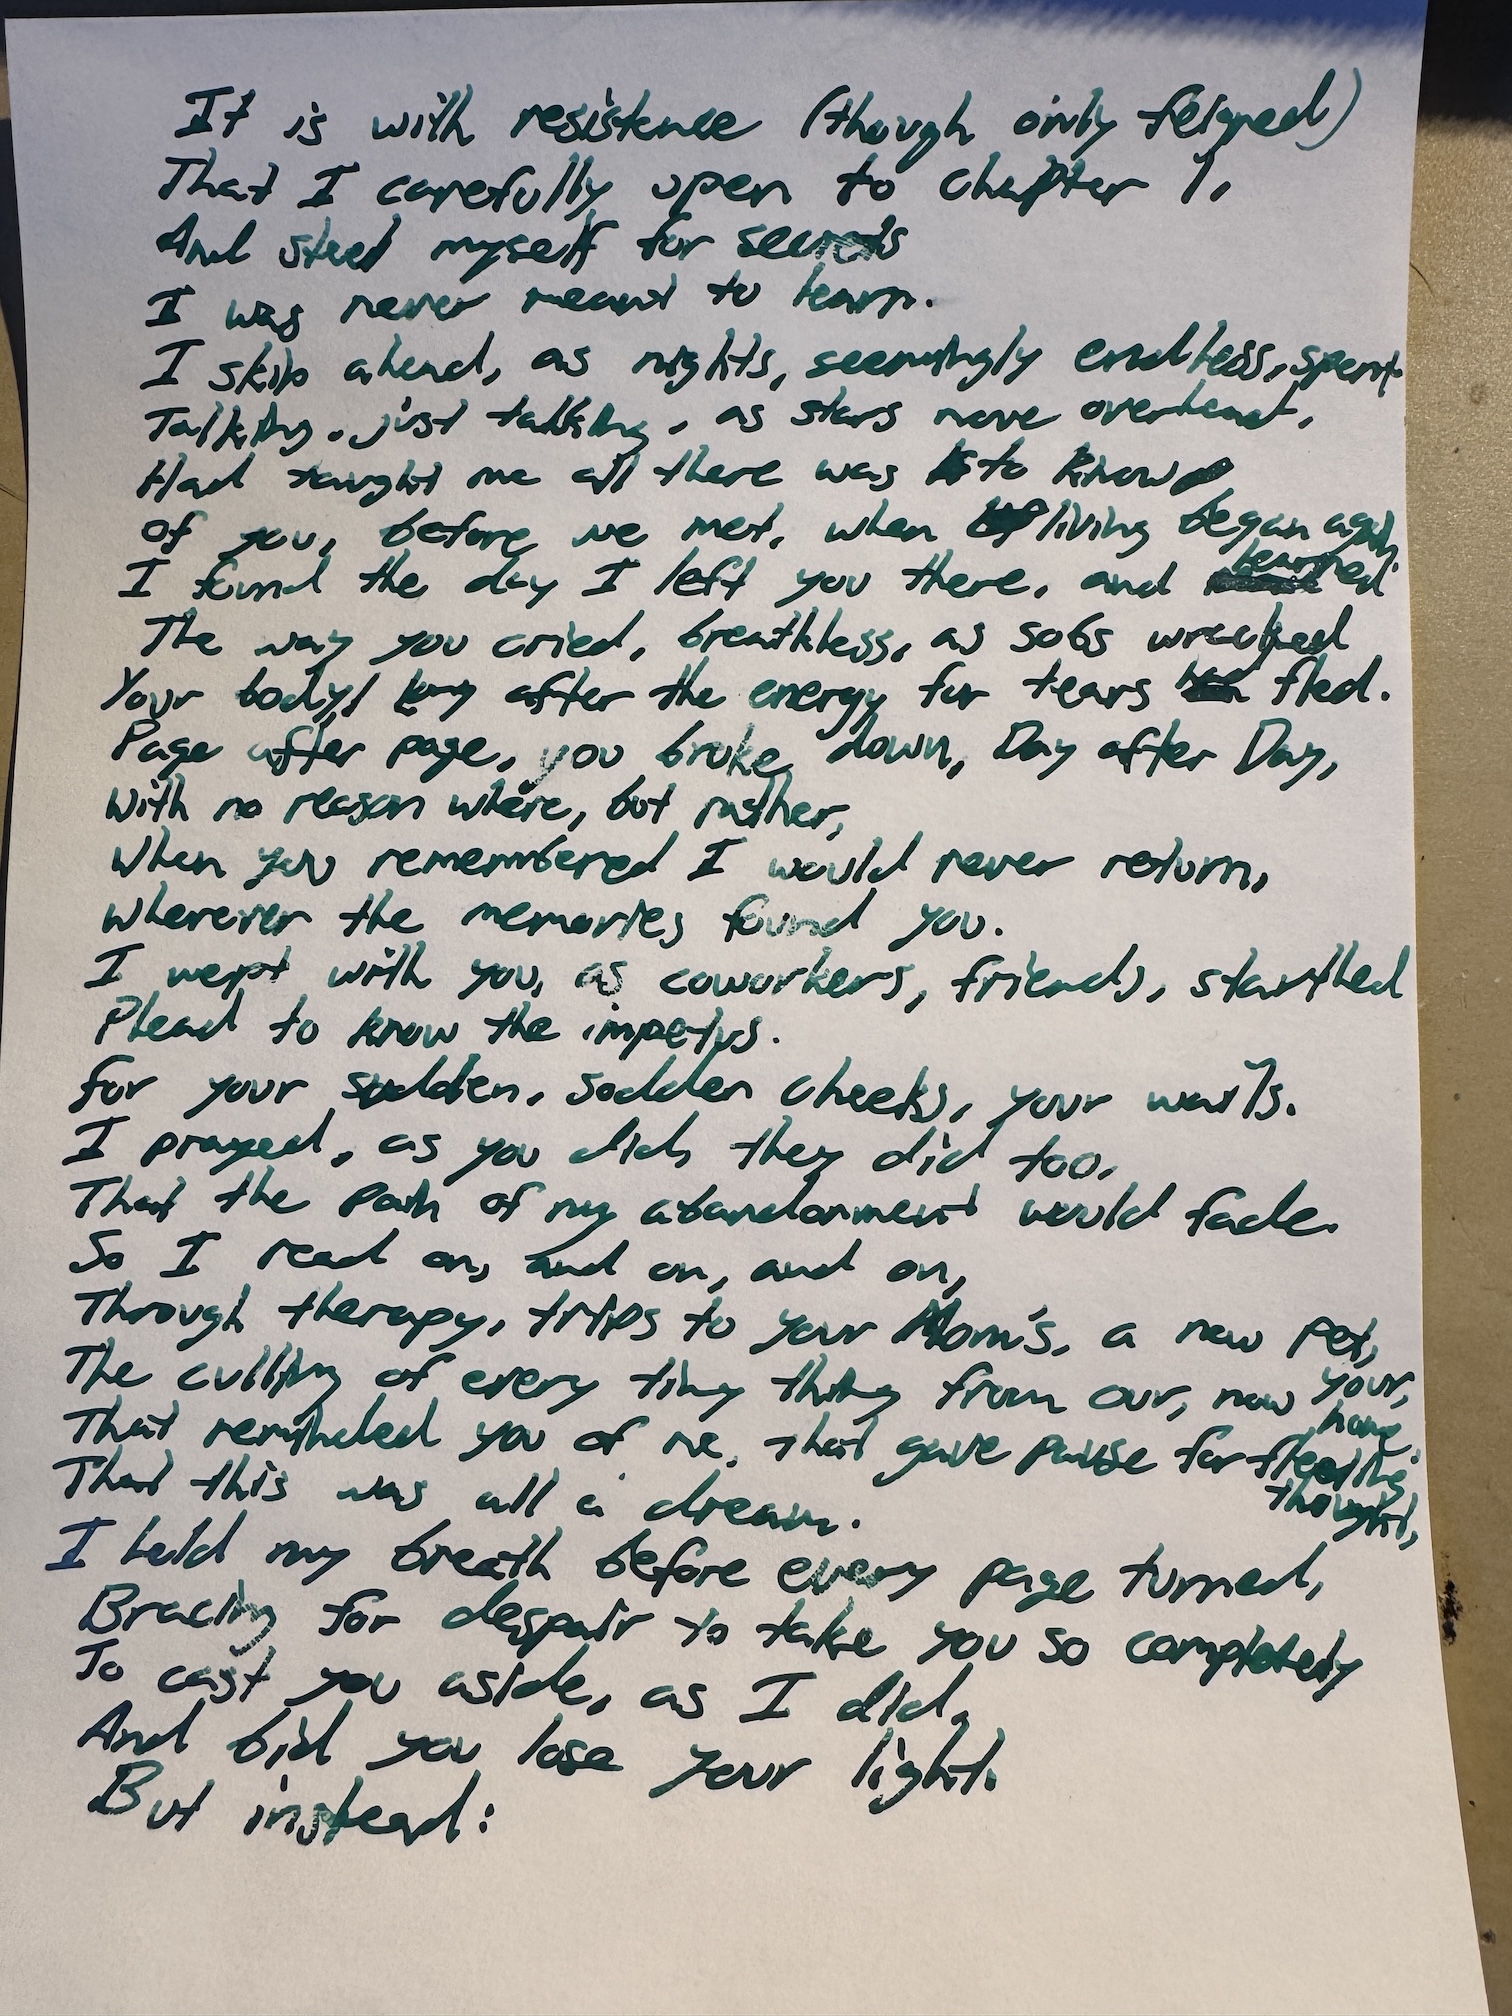 It is with resistence (though only feigned)
That I carefully open to chapter 1,
And steel myself for secrets
I was never meant to learn.
I skip ahead, as nights, seemingly endless, spent
Talking, just talking, as stars move overhead,
Had taught me all there was to know
Of you, before we met, when living began again.
I found the day I left you there, and learned
The way you cried, breathless, as sobs wracked
Your body, long after the energy for tears fled.
Page after page, you broke down, Day after Day,
With no reason where, but rather,
When you remembered I would never return,
Wherever the memories found you.
I wept with you, as coworkers, friends, startled
Plead to know the impetus.
For your sudden, sodden cheeks, your wails.
I prayed, as you did, they did too,
That the pain of my abandonment would fade.
So I read on, and on, and on,
Through therapy, trips to your Mom's, a new pet,
The culling of every tiny thing from our, now your, home
That reminded you of me, that gave pause for fleeting thought,
That this was all a dream.
I held my breath before every page turned,
Bracing for despair to take you so completely
To cast you aside, as I did,
And bid you lose your light.
But instead: